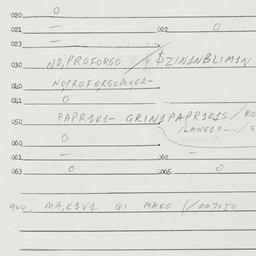 020 0
021 — 022 0
023 —
030 ND,PROFORGO / $ZIN1NBLIM1N
040 NOPROFORGOMOG1-
041 0
050 PAPR1K1- GRIN1PAPR1K1S / RO
/LANG1P... / S
060 0
061 — 062 —
063 0 065 0
900. MA,K1V1 QI MAKO (/007050